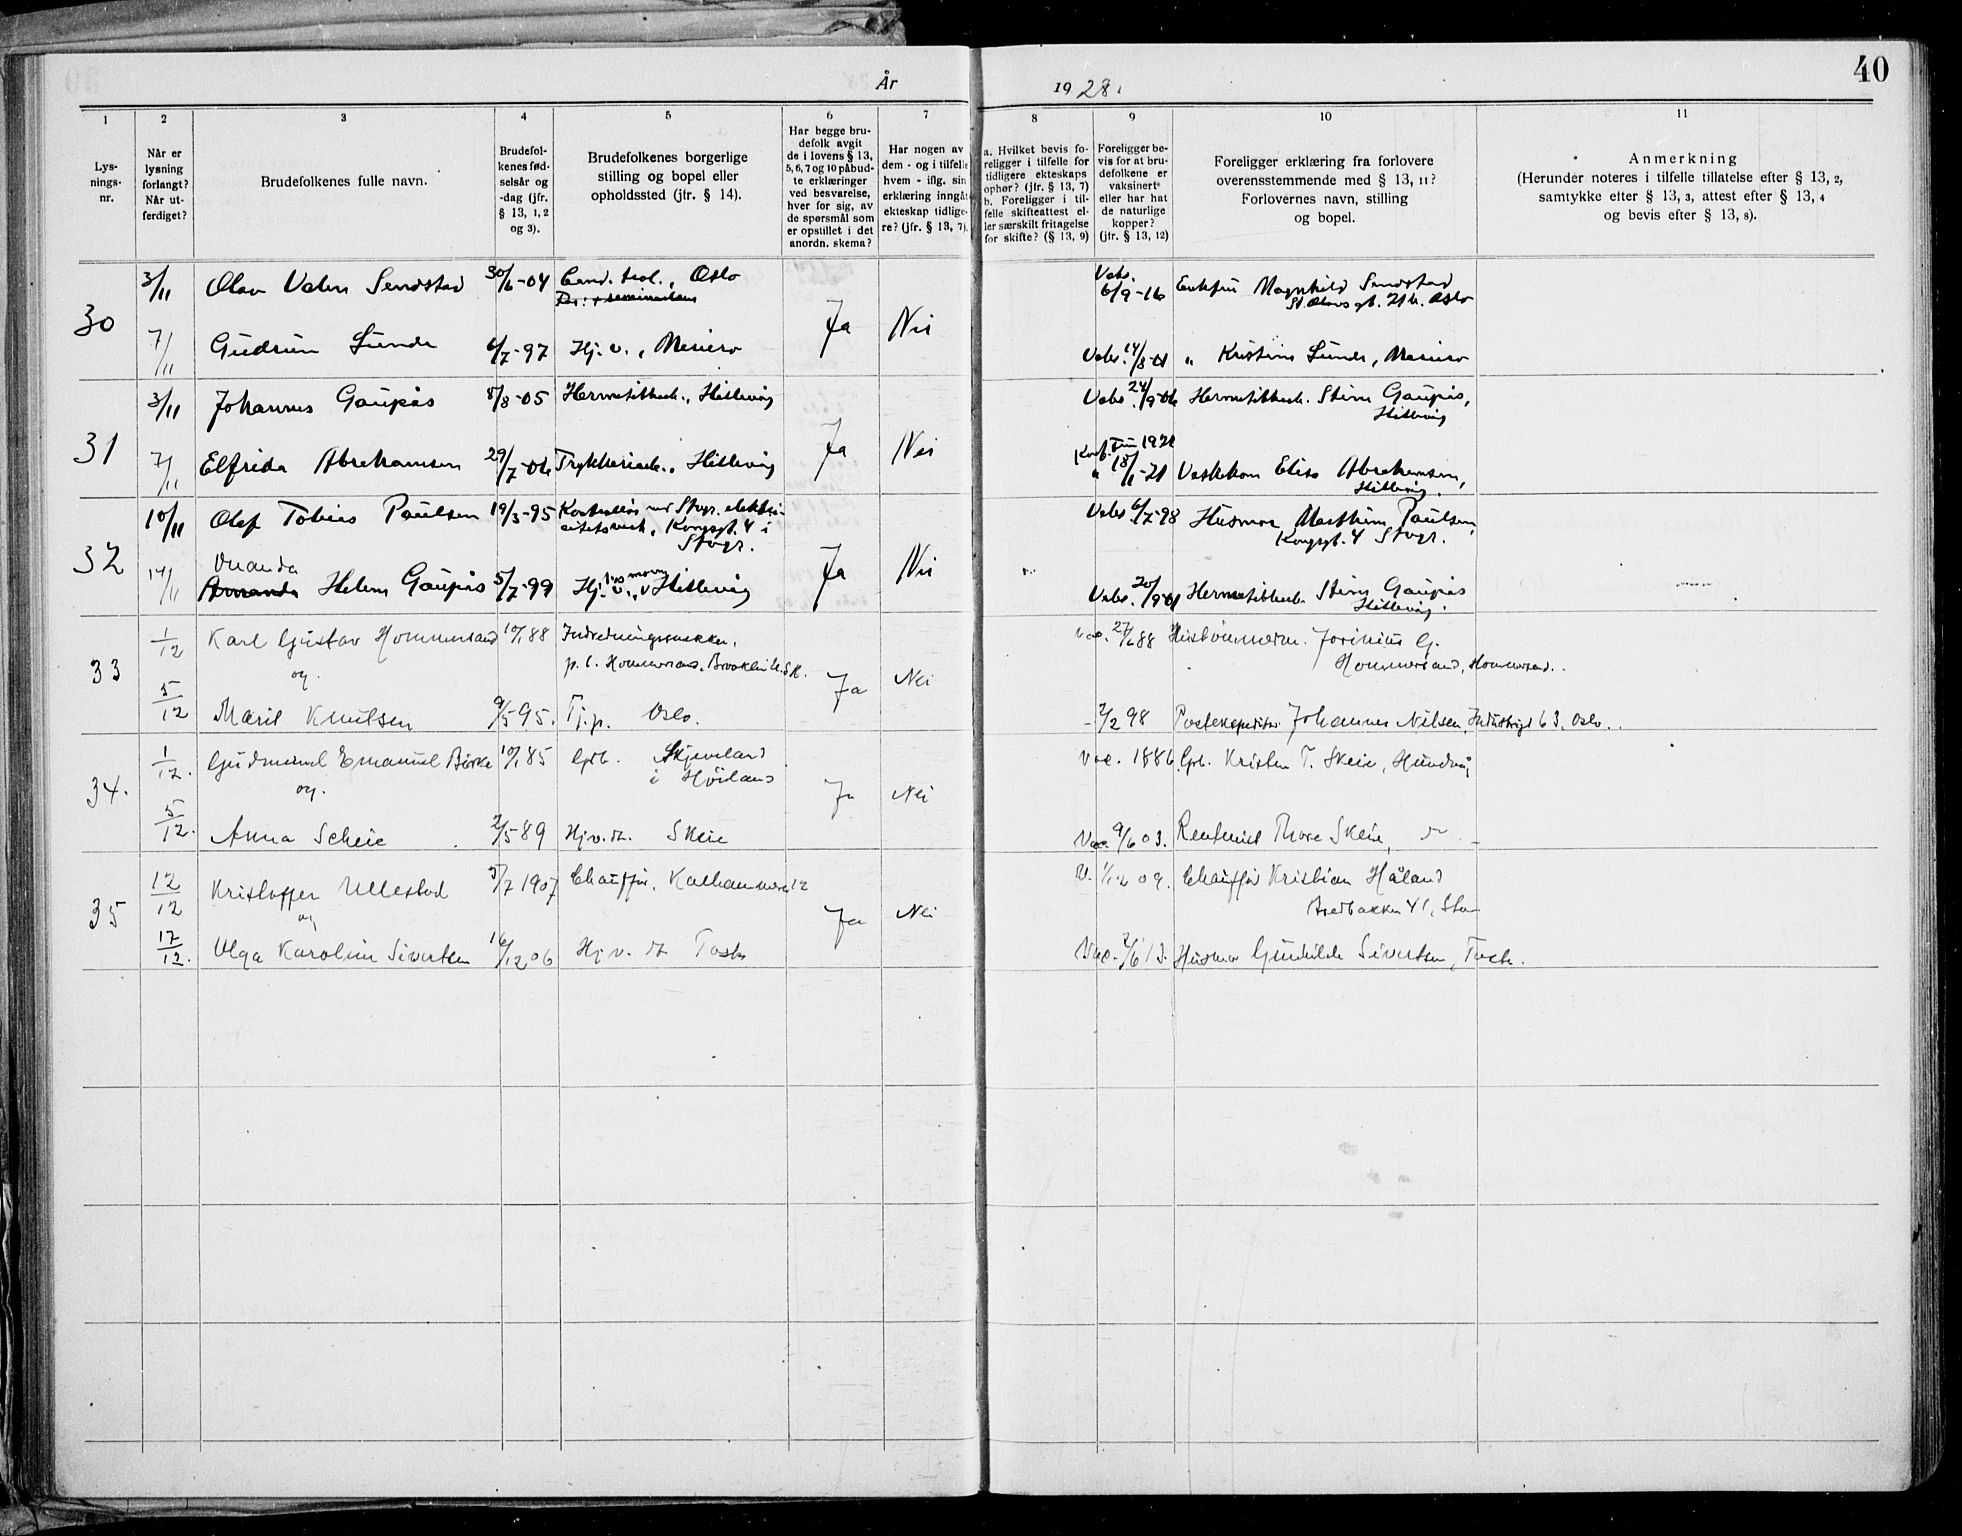 40
År 1928.
1
2
3
4
5
6
7
8
9
10
11
Lys-
nings-
nr.
Når er
lysning
forlangt?
Når ut-
ferdiget?
Brudefolkenes fulle navn.
Brudefol-
kenes fød-
selsår og
-dag (jfr.
§ 13, 1, 2
og 3).
Brudefolkenes borgerlige
stilling og bopel eller
opholdssted (jfr. § 14).
Har begge bru-
defolk avgit
de i lovens § 13,
5, 6, 7 og 10 påbud-
te erklæringer
ved besvarelse,
hver for sig, av
de spørsmål som
er opstillet i det
anordn. skema?
Har nogen av
dem - og i tilfelle
hvem - iflg. sin
erklæring inngåt
ekteskap tidlige-
re? (jfr. § 13, 7).
a. Hvilket bevis fo-
religger i tilfelle for
tidligere ekteskaps
ophør? (jfr. § 13, 7)
b. Foreligger i til-
felle skifteattest el-
ler særskilt fritagelse
for skifte? (§ 13, 9)
Foreligger be-
vis for at bru-
defolkene er
vaksinert
eller har hat
de naturlige
kopper?
(jfr. § 13, 12)
Foreligger erklæring fra forlovere
overensstemmende med § 13, 11?
Forlovernes navn, stilling
og bopel.
Anmerkning
(Herunder noteres i tilfelle tillatelse efter § 13, 2,
samtykke efter § 13, 3, attest efter § 13, 4
og bevis efter § 13, 8).
30
3/11
Olav Valen Sendstad
30/6-04
Cand. teol., Oslo
Ja
Nei
6/9-16
Enkefru Magnhild Sendstad
St. Olavs gt. 21 b. Oslo
7/11
Gudrun Lunde
6/7-97
Hj. v.,
14/8-01
" Kristine Lunde,
31
3/11
Johannes Gaupås
8/8-05
Hermetikkarb., Hillevåg
Ja
Nei
24/9-06
Hermetikkarb. Stein Gaupås,
Hillevåg
7/11
Elfrida Abrahamsen
29/7-06
Trykkeriarb., Hillevåg
Vaskekone Elise Abrahamsen,
Hillevåg.
32
10/11
Olaf Tobias Paulsen
19/3-95
Kontrollør ved Stvgr. elektri-
citetsverk, Kongsgt. 4 i
Stvgr.
Ja
Nei
6/7-98
Husmor Marthine Paulsen,
Kongsgt. 4 Stvgr.
14/11
Onanda
Amanda Helene Gaupås
5/7-99
Hj. v., Hillevåg
20/9-01
Hermetikkarb. Stein Gaupås
Hillevåg.
33
1/12
Karl Gustav Hommersand
10/1 88
Indredningssnekker,
p. t. Hommersand, Brooklin U.S.A.
Ja
Nei
Vac. 27/6 88
Jorinius G.
Hommersand, Hommersand.
og.
5/12
Marit Knutsen
9/5 95.
Tj.p. Oslo.
- 2/2 98
Postekspeditør Johannes Nilsen, Industrigt 63, Oslo.
34.
1/12.
Gudmund Emanuel Birke
10/1 85
Grb. Skjæveland
i Höiland
Ja
Nei
Vac. 1886
Grb. Kristen T. Skeie, Hundvåg
og.
5/12.
Anna Scheie
2/5 89
Hj. v. dt. Skeie
Vac. 9/6 03.
Rentenist Thore Skeie, do -
35
12/12
Kristoffer Ullestad
3/7 1907
Chauffør, Kathammeren 12
Ja
Nei
V. 1/12 09.
Chauffør Kristian Håland
Aredbakken 41, Stav
og
17/12.
Olga Karoline Sivertsen
16/12 06
Hj v. dt Tasta
Vac. 2/6 13.
Husmor Gunhilde Sivertsen, Tasta.